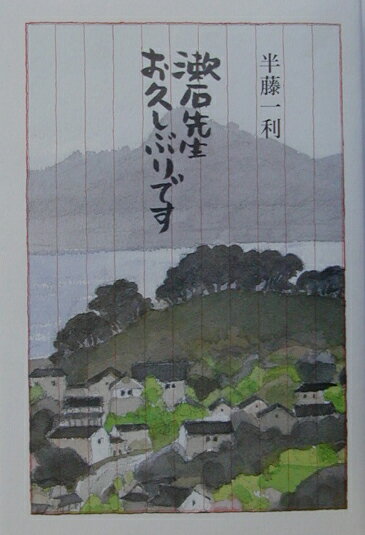 半藤一利
漱石先生
お久しぶりです